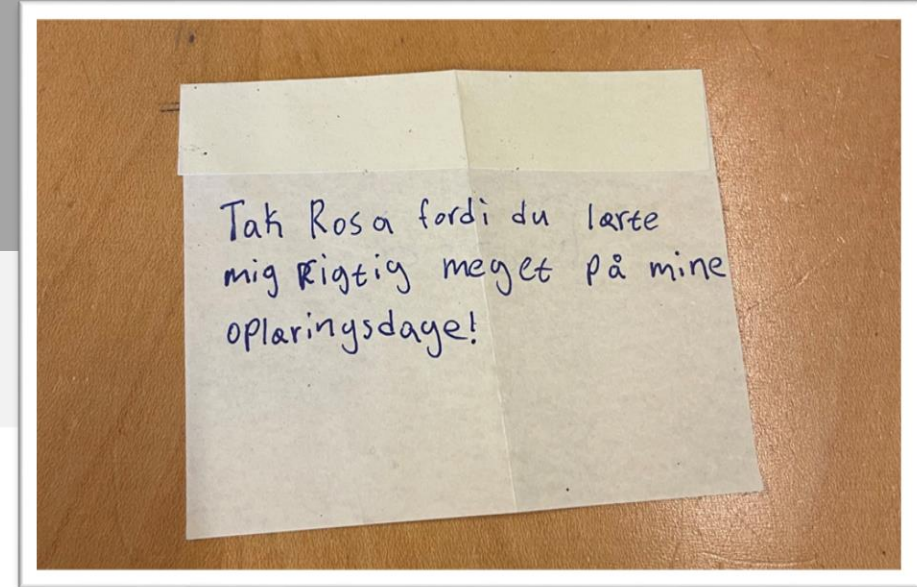 Tak Rosa fordi du lærte
mig Rigtig meget på mine
oplæringsdage!